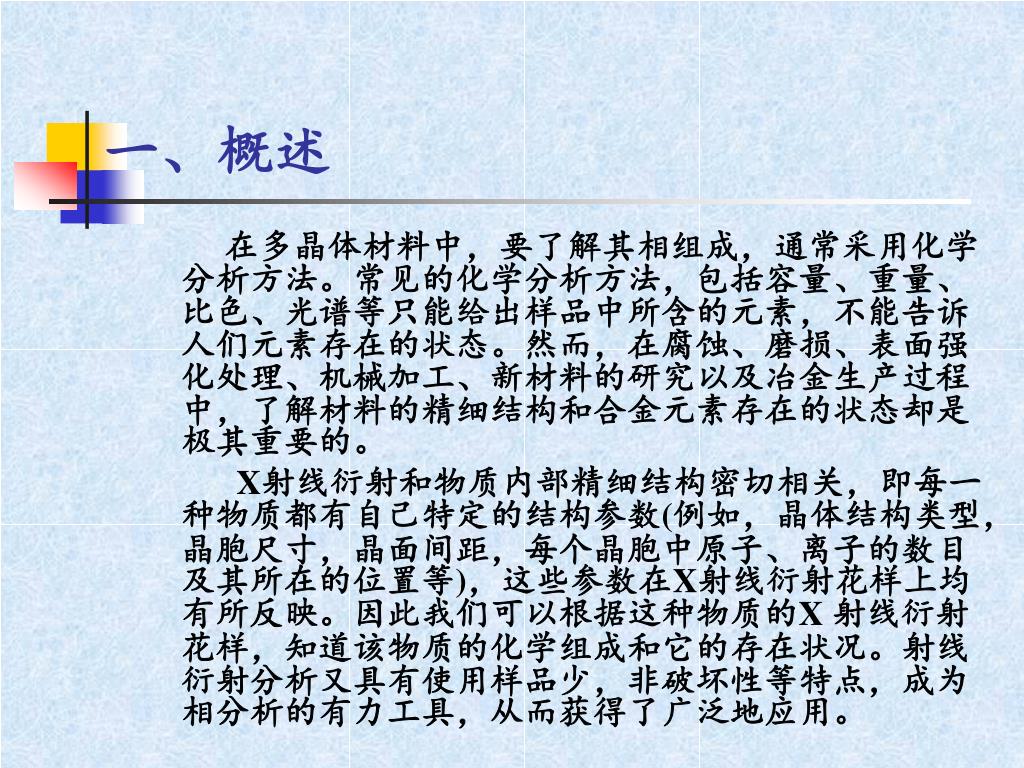 一、概述
在多晶体材料中，要了解其相组成，通常采用化学
分析方法。常见的化学分析方法，包括容量、重量、
比色、光谱等只能给出样品中所含的元素，不能告诉
人们元素存在的状态。然而，在腐蚀、磨损、表面强
化处理、机械加工、新材料的研究以及冶金生产过程
中，了解材料的精细结构和合金元素存在的状态却是
极其重要的。
X射线衍射和物质内部精细结构密切相关，即每一
种物质都有自己特定的结构参数(例如，晶体结构类型，
晶胞尺寸，晶面间距，每个晶胞中原子、离子的数目
及其所在的位置等)，这些参数在X射线衍射花样上均
有所反映。因此我们可以根据这种物质的X 射线衍射
花样，知道该物质的化学组成和它的存在状况。射线
衍射分析又具有使用样品少，非破坏性等特点，成为
相分析的有力工具，从而获得了广泛地应用。